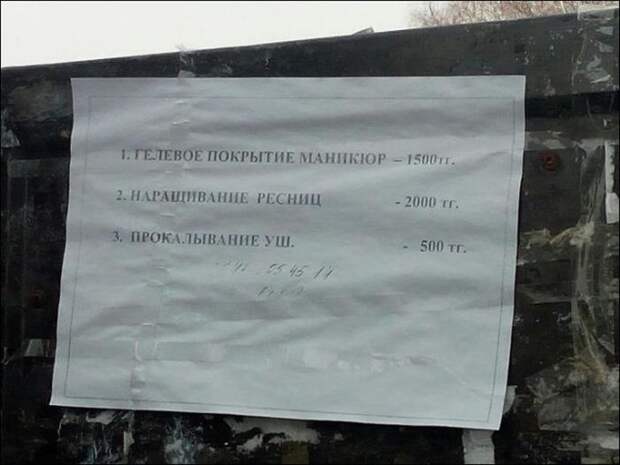 1. ГЕЛЕВОЕ ПОКРЫТИЕ МАНИКЮР – 1500тг.
2. НАРАЩИВАНИЕ РЕСНИЦ - 2000 тг.
3. ПРОКАЛЫВАНИЕ УШ. - 500 тг.
25 45 14